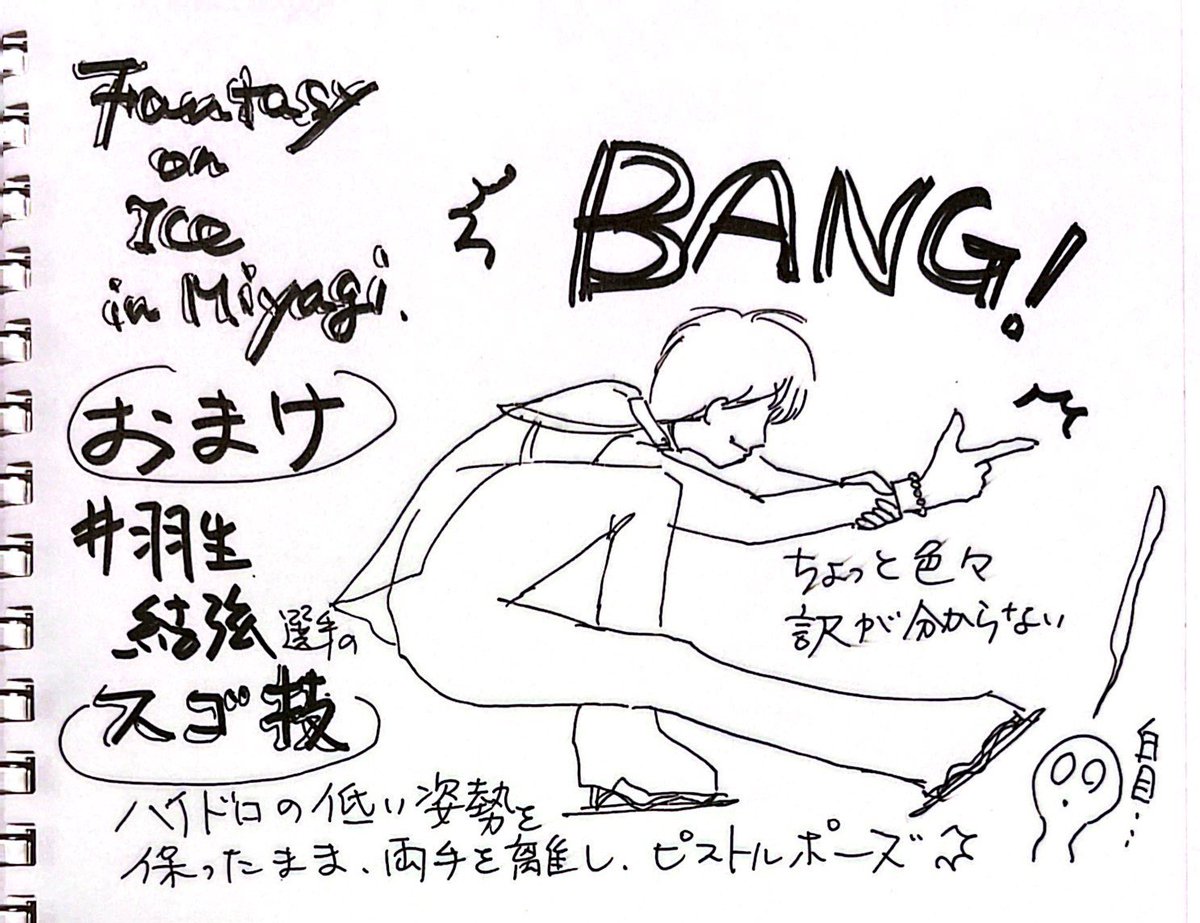 Fantasy
on
Ice
in Miyagi.
BANG!
おまけ
#羽生
結弦選手の
スゴ技
ちょっと色々
訳が分からない
白目…
ハイドロの低い姿勢を
保ったまま、両手を離し、ピストルポーズ♪